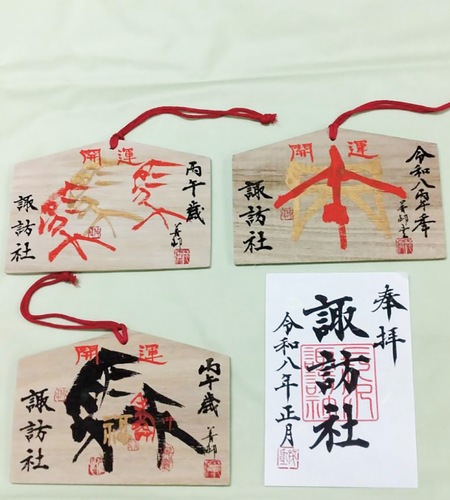 開運
丙午歳
諏訪社
開運
令和八丙午年
諏訪社
開運
丙午歳
諏訪社
奉拝
諏訪社
令和八年正月